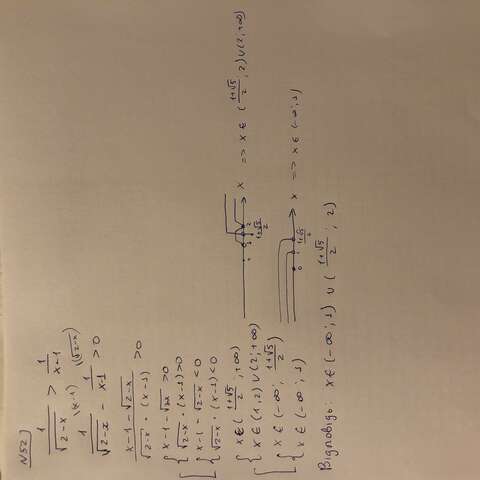 N52)
1/√(2-x) > 1/(x-1)
1/√(2-x) - 1/(x-1) > 0
(x-1-√(2-x))/(√(2-x)·(x-1)) > 0
[{x-1-√(2-x) > 0
√(2-x)·(x-1) > 0
{x-1-√(2-x) < 0
√(2-x)·(x-1) < 0
[{x∈((1+√5)/2; +∞)
x∈(1,2)∪(2;+∞) => x∈((1+√5)/2; 2)∪(2;+∞)
{x∈(-∞; (1+√5)/2)
x∈(-∞; 1) => x∈(-∞; 1)
Відповідь: x∈(-∞; 1) ∪ ((1+√5)/2; 2)